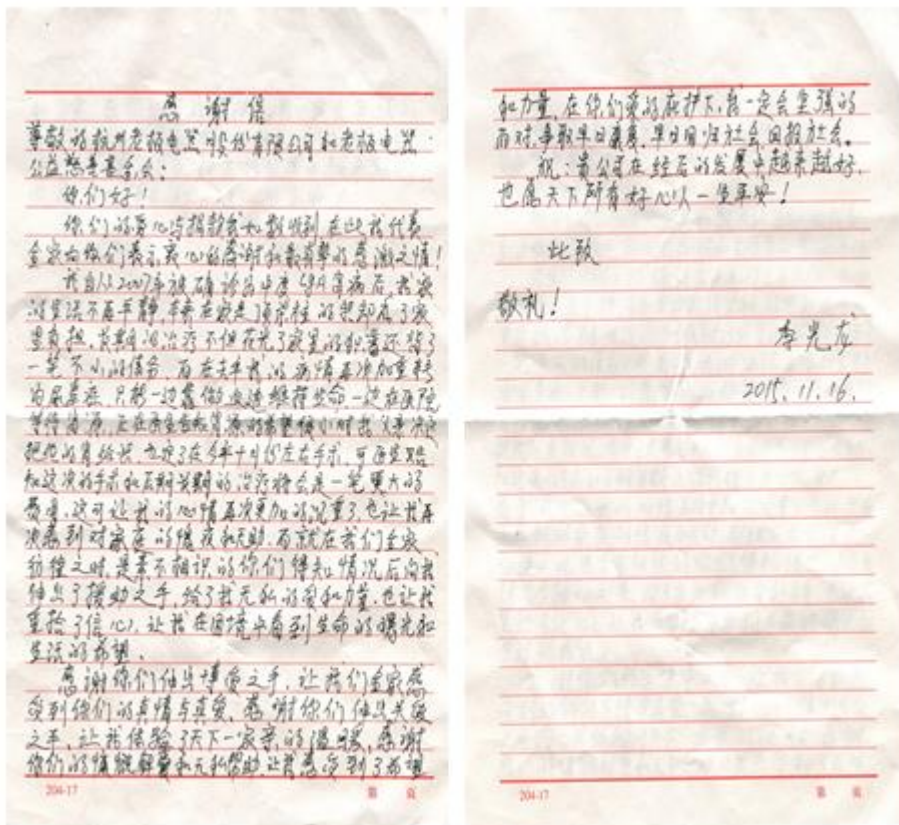 感谢信
尊敬的杭州老板电器股份有限公司和老板电器
公益慈善基金会:
你们好!
你们的爱心与捐款我和收到,在此我代表
全家向你们表示衷心的感谢和最真挚的感激之情!
我自从2007年被确诊为中度病后,我家
的生活不再平静,本来在家是顶梁柱的我却成了家
里负担,长期的治疗不但花光了家里的积蓄还背了
一笔不小的债务,而在去年我的病情再次加重转
为尿毒症,只能一边靠做血透维持生命,一边在医院
等待肾源,正在希望时我父亲决定
把他的肾给我,也定了在今年十月份左右手术,可
知这次的手术和后期长期的治疗将会是一笔更大的
费用,这可让我的心情再次更加的沉重了,也让我再
次感到对家庭的愧疚和无助,而就在我们全家
彷徨之时,是素不相识的你们得知情况后向我
伸出了援助之手,给了我无私的爱和力量,也让我
重拾了信心,让我在困境中看到生命的曙光和
生活的希望。
感谢你们伸出博爱之手,让我们全家感
受到你们的真情与真爱,感谢你们伸出关爱
之手,让我体验了天下一家亲的温暖,感谢
你们的慷慨解囊和无私帮助,让我感受到了希望
204-17
第 页
和力量,在你们爱的庇护下,我一定会坚强的
面对,争取早日康复,早日回归社会,回报社会。
祝:贵公司在经后的发展中越来越好,
也愿天下所有好心人一生平安!
此致
敬礼!
李光
2015.11.16.
204-17
第 页